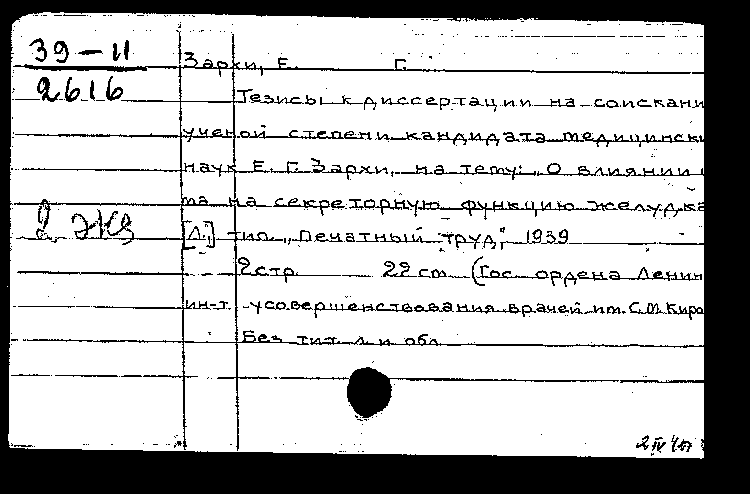 39-11
2616
Зархи, Е. Г.
Тезисы к диссертации на соискани
ученой степени кандидата медицинск
наук Е. Г. Зархи, на тему: „О влиянии
та на секреторную функцию желудка
2 экз
[Л.], тип. „Печатный труд“, 1939
2 стр. 22 см (Гос. ордена Ленин
ин-т усовершенствования врачей им. С. М. Киро
Без тит. л. и обл.